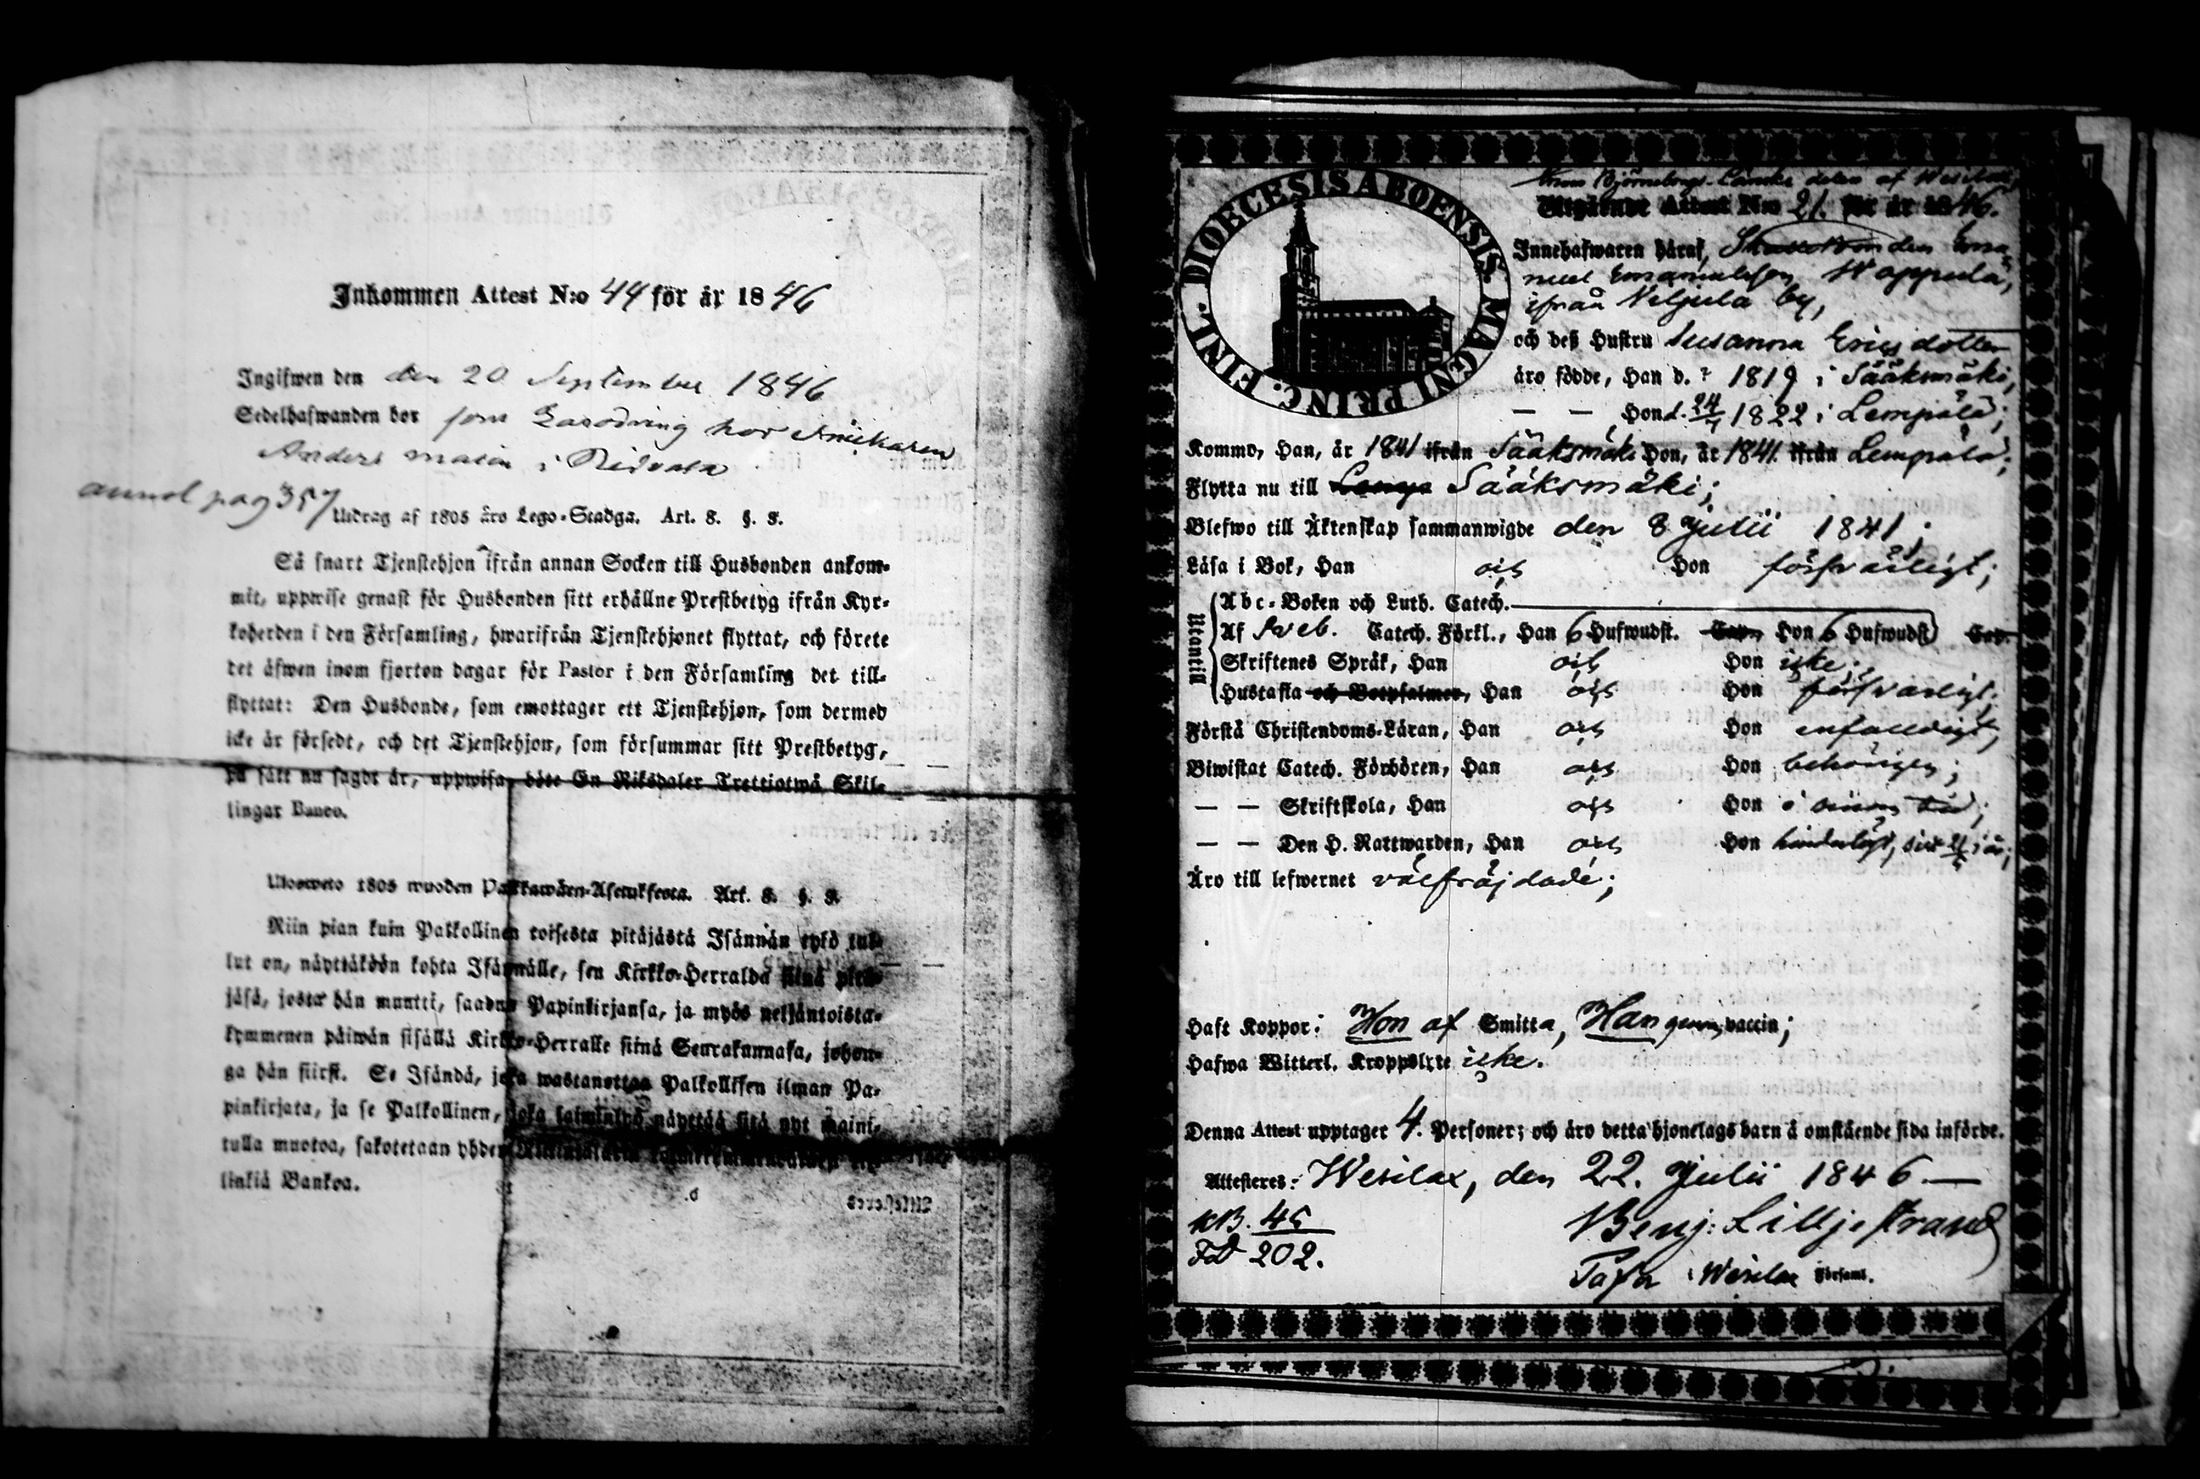 Inkommen Attest N:o 44 för år 1846
Ingifwen den den 20 September 1846
Sedelhafwanden bor som hos
Anders i
annot pag 357
Utdrag af 1805 års Lego-Stadga. Art. 8. §. 9.
Så snart Tjenstehjon ifrån annan Socken till Husbonden ankom-
mit, uppwise genast för Husbonden sitt erhållne Prestbetyg ifrån Kyr-
koherden i den Församling, hwarifrån Tjenstehjonet flyttat, och förete
det äfwen inom fjorton dagar för Pastor i den Församling det till-
flyttat: Den Husbonde, som emottager ett Tjenstehjon, som dermed
icke är försedt, och det Tjenstehjon, som försummar sitt Prestbetyg,
på sätt nu sagdt är, uppwisa, böte En Riksdaler Trettiotwå Skil-
lingar Banco.
Ulosweto 1805 wuoden Palkkawäen-Asetuksesta. Art. 8. §. 9.
Niin pian kuin Palkollinen toisesta pitäjästä Isännän tykö tul-
lut on, näyttäköön kohta Isännälle, sen Kirkko-Herralda siinä pitä-
jäsä, josta hän muutti, saadun Papinkirjansa, ja myös neljäntoista-
kymmenen päiwän sisällä Kirkko-Herralle siinä Seurakunnasa, johon-
ga hän siirsi. Se Isändä, joka wastanottaa Palkollisen ilman Pa-
pinkirjata, ja se Palkollinen, joka laiminlyö näyttää sitä nyt maini-
tulla muotoa, sakotetaan yhden
linkiä Bankoa.
DIOECESIS ABOENSIS MAGNI PRINC. FINL.
Björneborgs Länska delen af Wesilax
Utgående Attest N:o 21. för år 1846.
Innehafwaren häraf, den Ema-
nuel Emanuelsson Wappula,
ifrån by,
och deß Hustru Susanna Ericsdotter
äro födde, Han d. ? 1819 i Sääksmäki,
— — Hon d. 24/7 1822 i Lempälä;
Kommo, Han, år 1841 ifrån Sääksmäki Hon, år 1841 ifrån Lempälä;
Flytta nu till Sääksmäki;
Blefwo till Äktenskap sammanwigde den 8 Julii 1841;
Läsa i Bok, Han ois Hon försvarligt;
Utantill
Abc-Boken och Luth. Catech.
Af Sveb. Catech. Förkl., Han 6 Hufwudst. Cap. Hon 6 Hufwudst Cap.
Skriftenes Språk, Han ois Hon icke;
Hustafla och Botpsalmer, Han ois Hon försvarligt;
Förstå Christendoms-Läran, Han ois Hon enfaldigt;
Biwistat Catech. Förhören, Han ois Hon behörigen;
— — Skriftskola, Han ois Hon i sinom tid;
— — Den H. Nattwarden, Han ois Hon i år;
Äro till lefwernet välfräjdade;
Haft Koppor: Hon af Smitta, Han genom vaccin;
Hafwa Witterl. Kroppslyte icke.
Denna Attest upptager 4. Personer; och äro detta hjonelags barn å omstående sida införde.
Attesteres: Wesilax, den 22. Julii 1846 —
KB. 45
Fol 202.
Benj: Liljestrand
i Wesilax Församl.